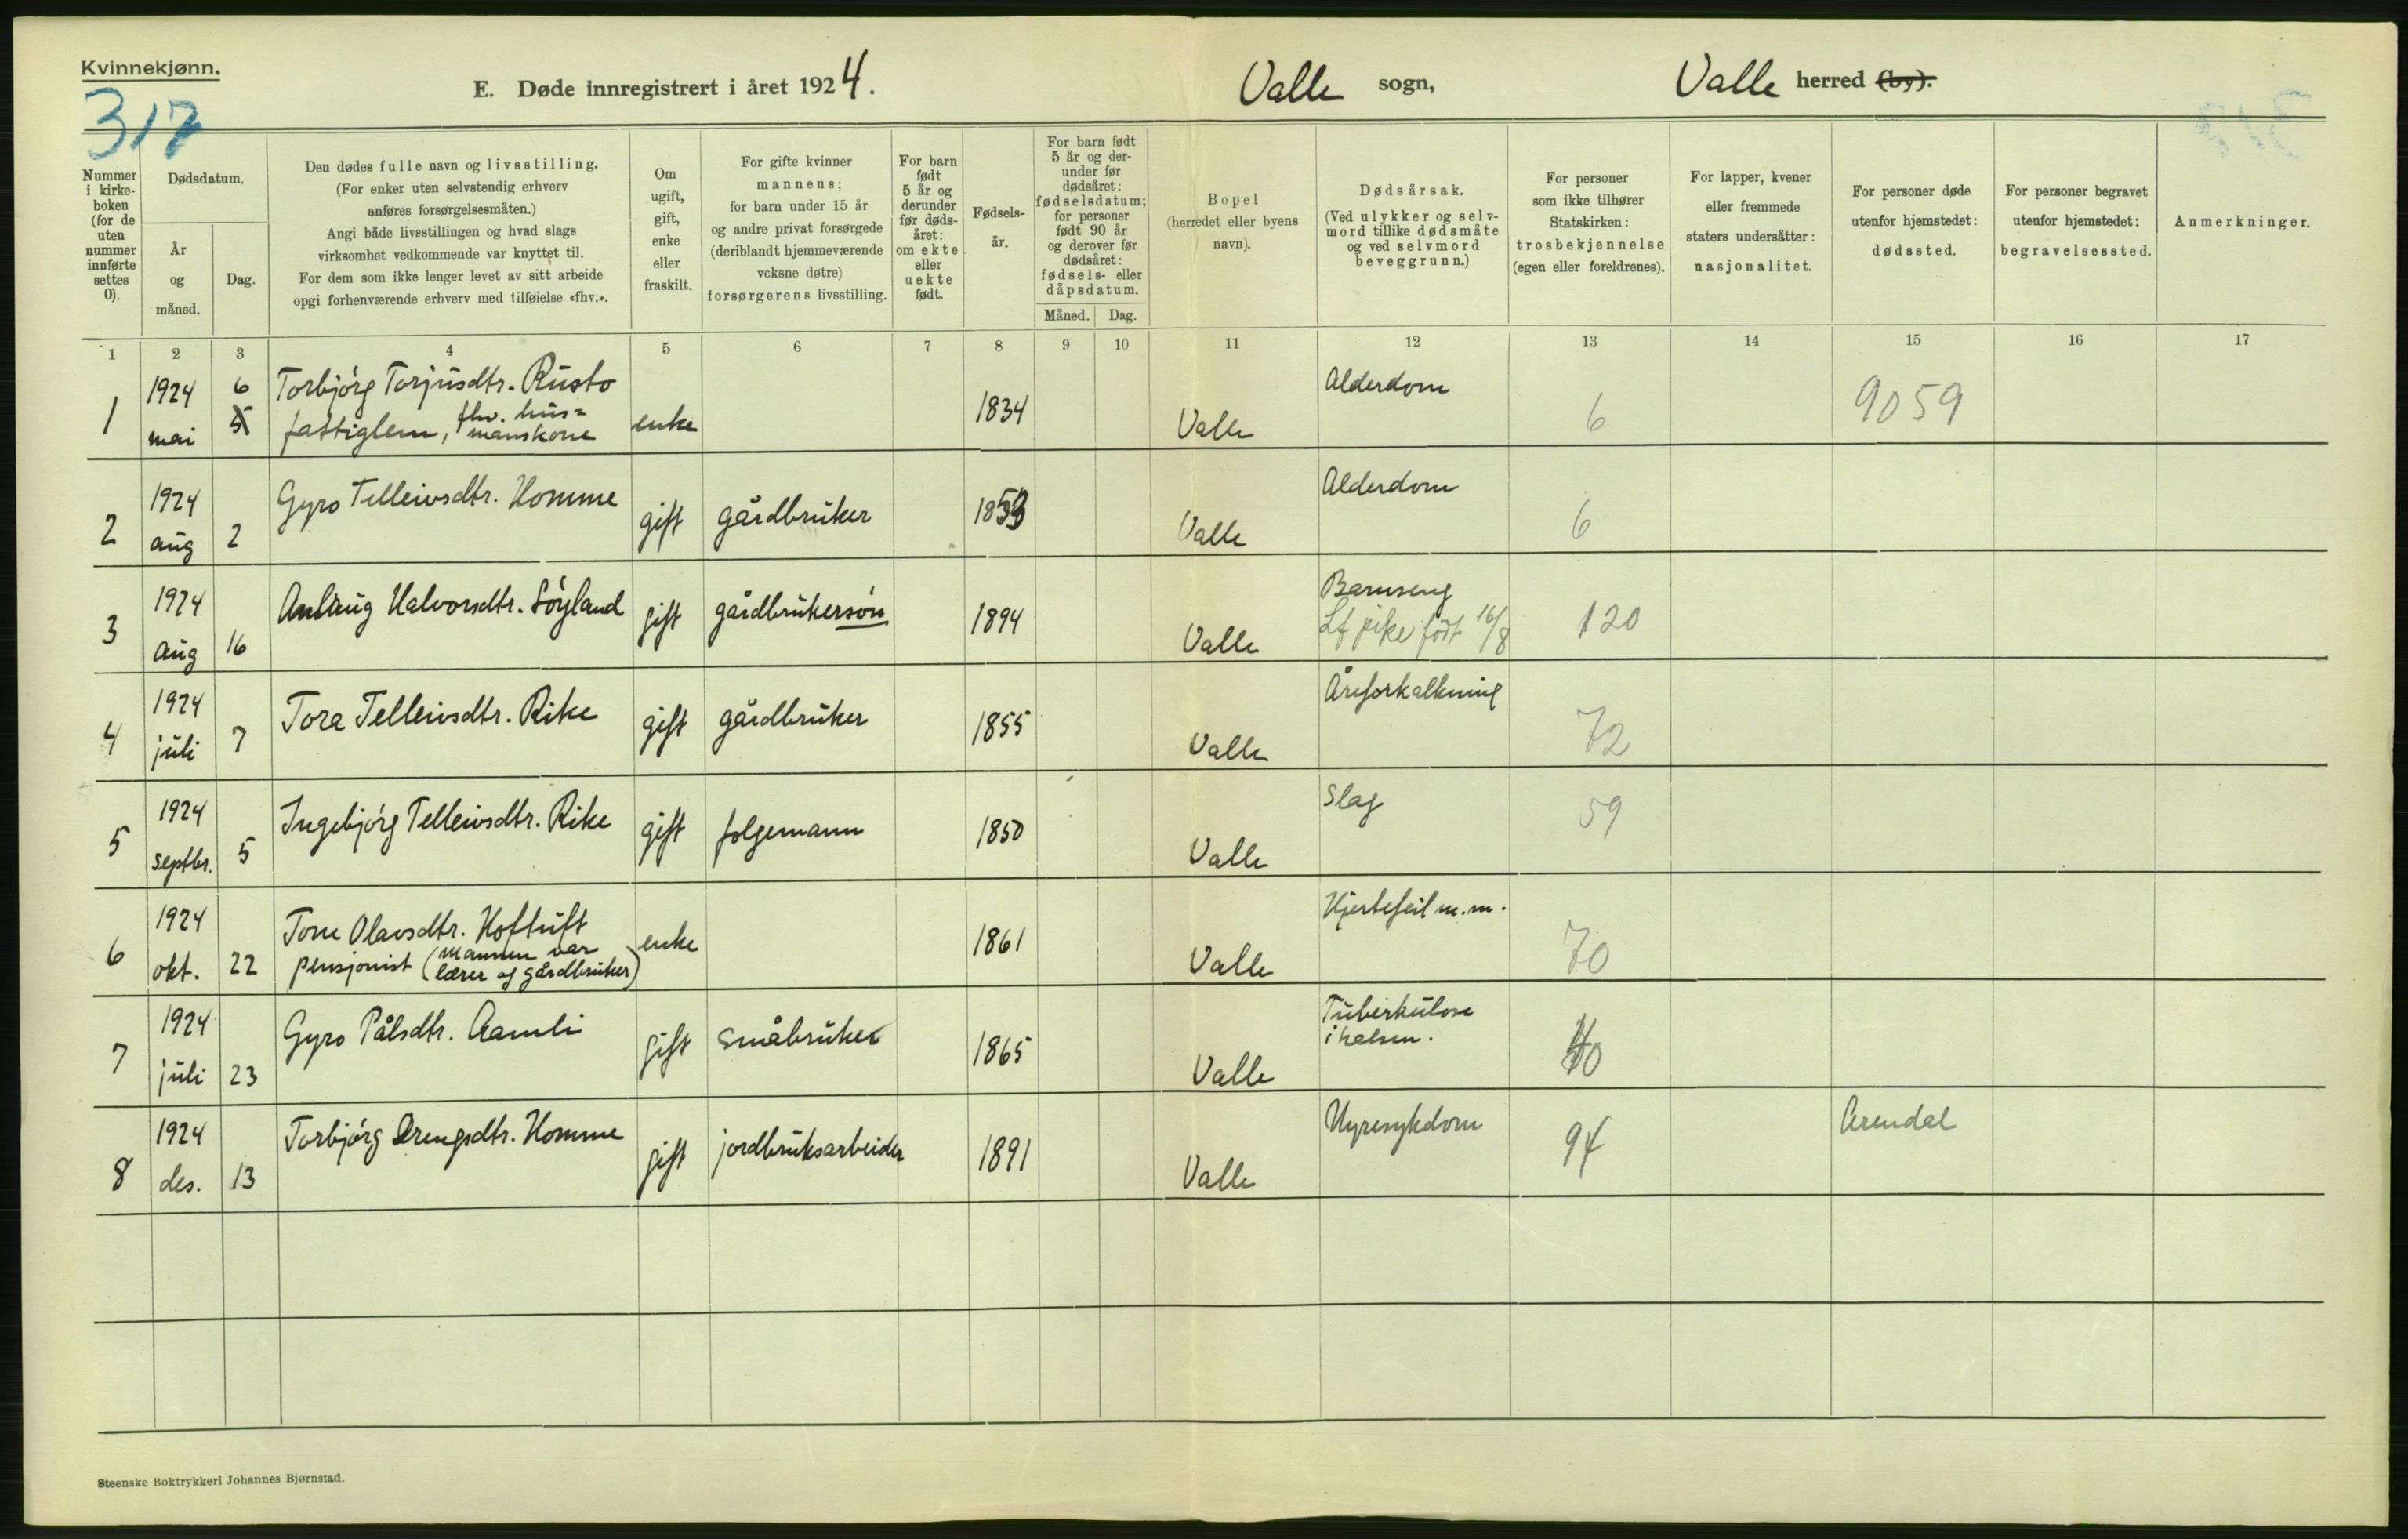 Kvinnekjønn.
317
E. Døde innregistrert i året 1924.
Valle sogn,
Valle herred (by).
Nummer i kirke-boken (for de uten nummer innførte settes 0).
Dødsdatum.
År og måned.
Dag.
Den dødes fulle navn og livsstilling.
(For enker uten selvstendig erhverv
anføres forsørgelsesmåten.)
Angi både livsstillingen og hvad slags
virksomhet vedkommende var knyttet til.
For dem som ikke lenger levet av sitt arbeide
opgi forhenværende erhverv med tilføielse «fhv.».
Om ugift, gift, enke eller fraskilt.
For gifte kvinner
mannens;
for barn under 15 år
og andre privat forsørgede
(deriblandt hjemmeværende
voksne døtre)
forsørgerens livsstilling.
For barn født 5 år og derunder før døds-året: om ekte eller uekte født.
Fødsels-år.
For barn født 5 år og der-under før dødsåret: fødselsdatum; for personer født 90 år og derover før dødsåret: fødsels- eller dåpsdatum.
Måned. Dag.
Bopel
(herredet eller byens
navn).
Dødsårsak.
(Ved ulykker og selv-
mord tillike dødsmåte
og ved selvmord
beveggrunn.)
For personer
som ikke tilhører
Statskirken:
trosbekjennelse
(egen eller foreldrenes).
For lapper, kvener
eller fremmede
staters undersåtter:
nasjonalitet.
For personer døde
utenfor hjemstedet:
dødssted.
For personer begravet
utenfor hjemstedet:
begravelsessted.
Anmerkninger.
1 2 3 4 5 6 7 8 9 10 11 12 13 14 15 16 17
1 1924 mai 6 5 Torbjórg Torjusdtr. Rusto fattiglem, fhv. hus=manskone enke 1834 Valle Alderdom 6 9059
2 1924 aug 2 Gyro Telleivsdtr. Homme gift gårdbruker 1853 Valle Alderdom 6
3 1924 aug 16 Halvorsdtr. gift gårdbrukersón 1894 Valle Barnseng Lf pike født 16/8 120
4 1924 juli 7 Tore Telleivsdtr. Rike gift gårdbruker 1855 Valle Åreforkalkning 72
5 1924 septbr. 5 Ingebjórg Telleivsdtr. Rike gift folgemann 1850 Valle Slag 59
6 1924 okt. 22 Tone Olavsdtr. Hoftuft pensjonist (mannen var lærer og gårdbruker) enke 1861 Valle Hjertefeil m.m. 70
7 1924 juli 23 Gyro Pålsdtr. Aamli gift småbruker 1865 Valle Tuberkulose i halsen.
8 1924 des. 13 Torbjórg Drengsdtr. Homme gift jordbruksarbeider 1891 Valle Nyresykdom 94 Arendal
Steenske Boktrykkeri Johannes Bjørnstad.